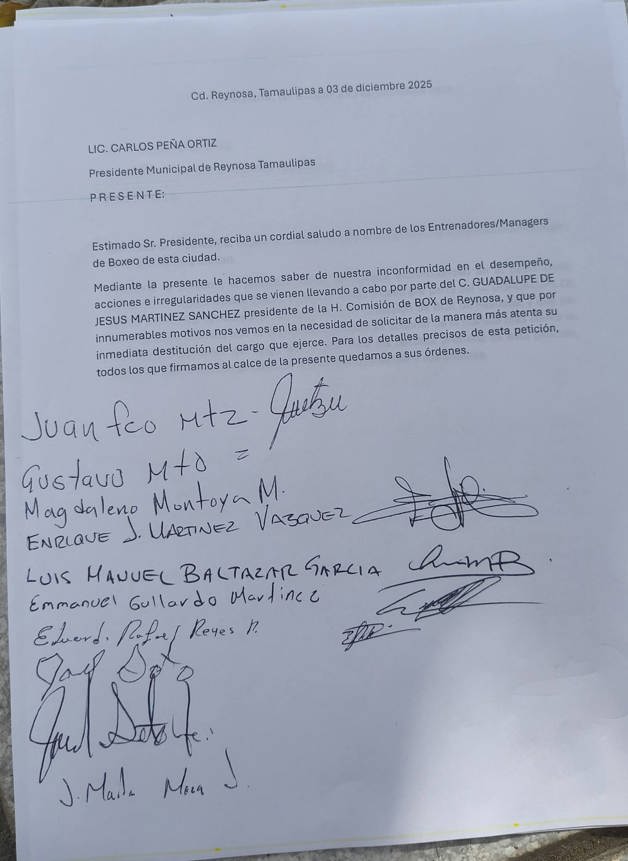 Cd. Reynosa, Tamaulipas a 03 de diciembre 2025
LIC. CARLOS PEÑA ORTIZ
Presidente Municipal de Reynosa Tamaulipas
P R E S E N T E:
Estimado Sr. Presidente, reciba un cordial saludo a nombre de los Entrenadores/Managers
de Boxeo de esta ciudad.
Mediante la presente le hacemos saber de nuestra inconformidad en el desempeño,
acciones e irregularidades que se vienen llevando a cabo por parte del C. GUADALUPE DE
JESUS MARTINEZ SANCHEZ presidente de la H. Comisión de BOX de Reynosa, y que por
innumerables motivos nos vemos en la necesidad de solicitar de la manera más atenta su
inmediata destitución del cargo que ejerce. Para los detalles precisos de esta petición,
todos los que firmamos al calce de la presente quedamos a sus órdenes.
Juan fco Mtz -
Gustavo
Magdaleno Montoya M.
ENRIQUE J. MARTINEZ VASQUEZ
LUIS MANUEL BALTAZAR GARCIA
Emmanuel Gullardo Martinez
Rafael Reyes
Soto
J. J.